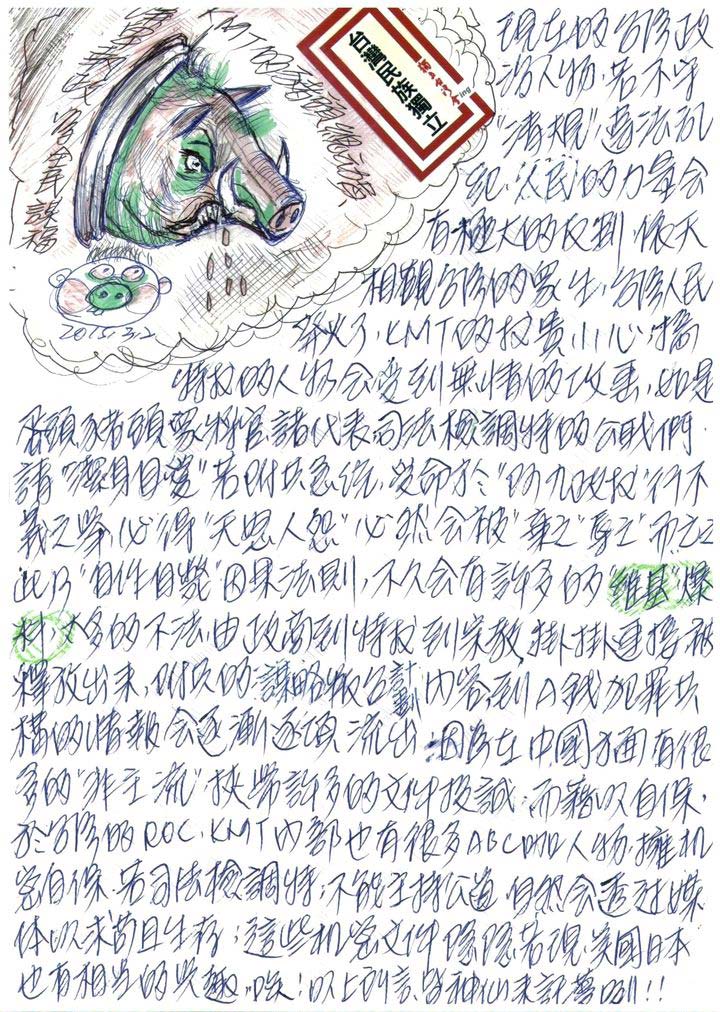 台灣民族獨立
ing
2015.3.2
現在的台灣政
治人物,若不守
"清規",違法乱
紀,人民的力量会
有極大的反制,依天
相觀台灣的眾生,台灣人民
發火了,KMT的权貴小心,搞
特权的人物会受到無情的攻擊,如是
豬頭眾將官,諸代表司法檢調特的公僕們,
請"潔身自愛"若附共急統,受命於"阿九政权"行不
義之舉,必得"天怒人怨"必然会被"棄之""辱之"而亡之
此乃"自作自斃"因果法則,不久会有許多的"維基"爆
料,太多的不法,由政商到特权到宗教,掛掛連接,被
釋放出來,附共的謀略叛台計劃內容到A錢犯罪共
構的情報会逐漸逐項流出,因為在中國方面有很
多的"非主流"挾帶許多的文件投誠,而藉以自保,
於台灣的ROC.KMT內部也有很多ABCD咖人物,擁机
密自保,若司法檢調特,不能主持公道,自然会透过媒
体以求苟且生存;這些机密文件隱隱若現,美國日本
也有相当的興趣,唉!以上列言,皆神仙來託夢吶!!